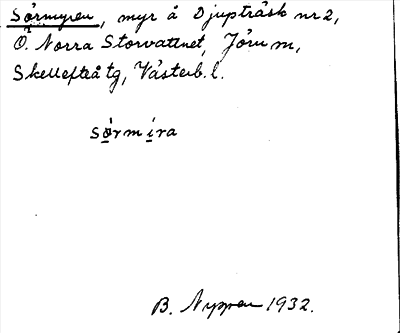 Sörmyren, myr å Djupträsk nr 2,
Ö. Norra Storvattnet, Jörn,
Skellefteå tg, Västerb. l.
sörmira
B. Nyppen 1932.